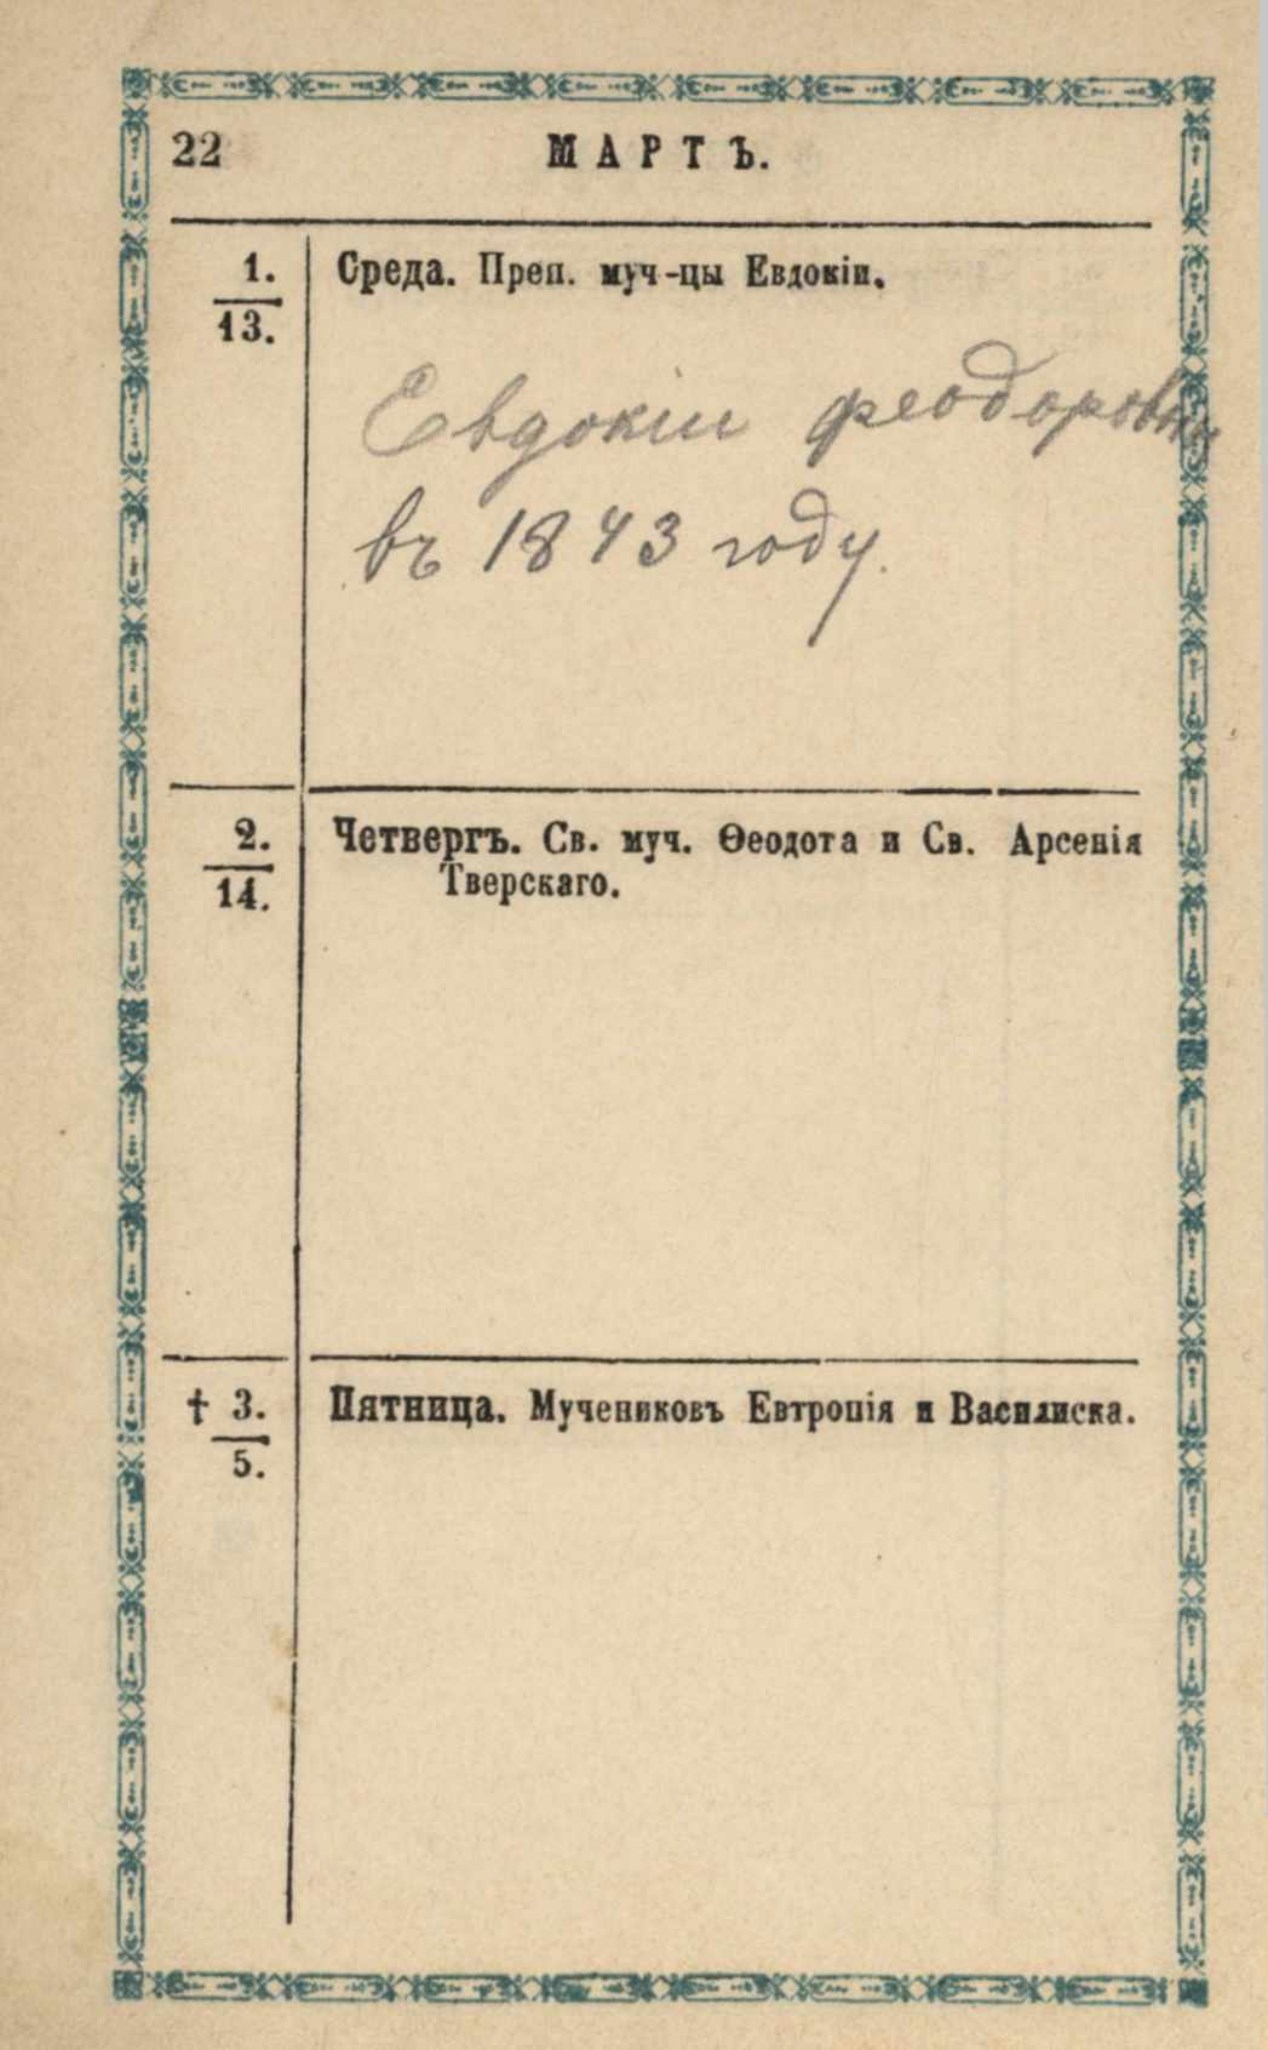 22
МАРТЪ.
1.
13.
Среда. Преп. муч-цы Евдокіи.
Евдокіи феодоровны
въ 1843 году.
2.
14.
Четвергъ. Св. муч. Ѳеодота и Св. Арсенія
Тверскаго.
† 3.
5.
Пятница. Мучениковъ Евтропія и Василиска.